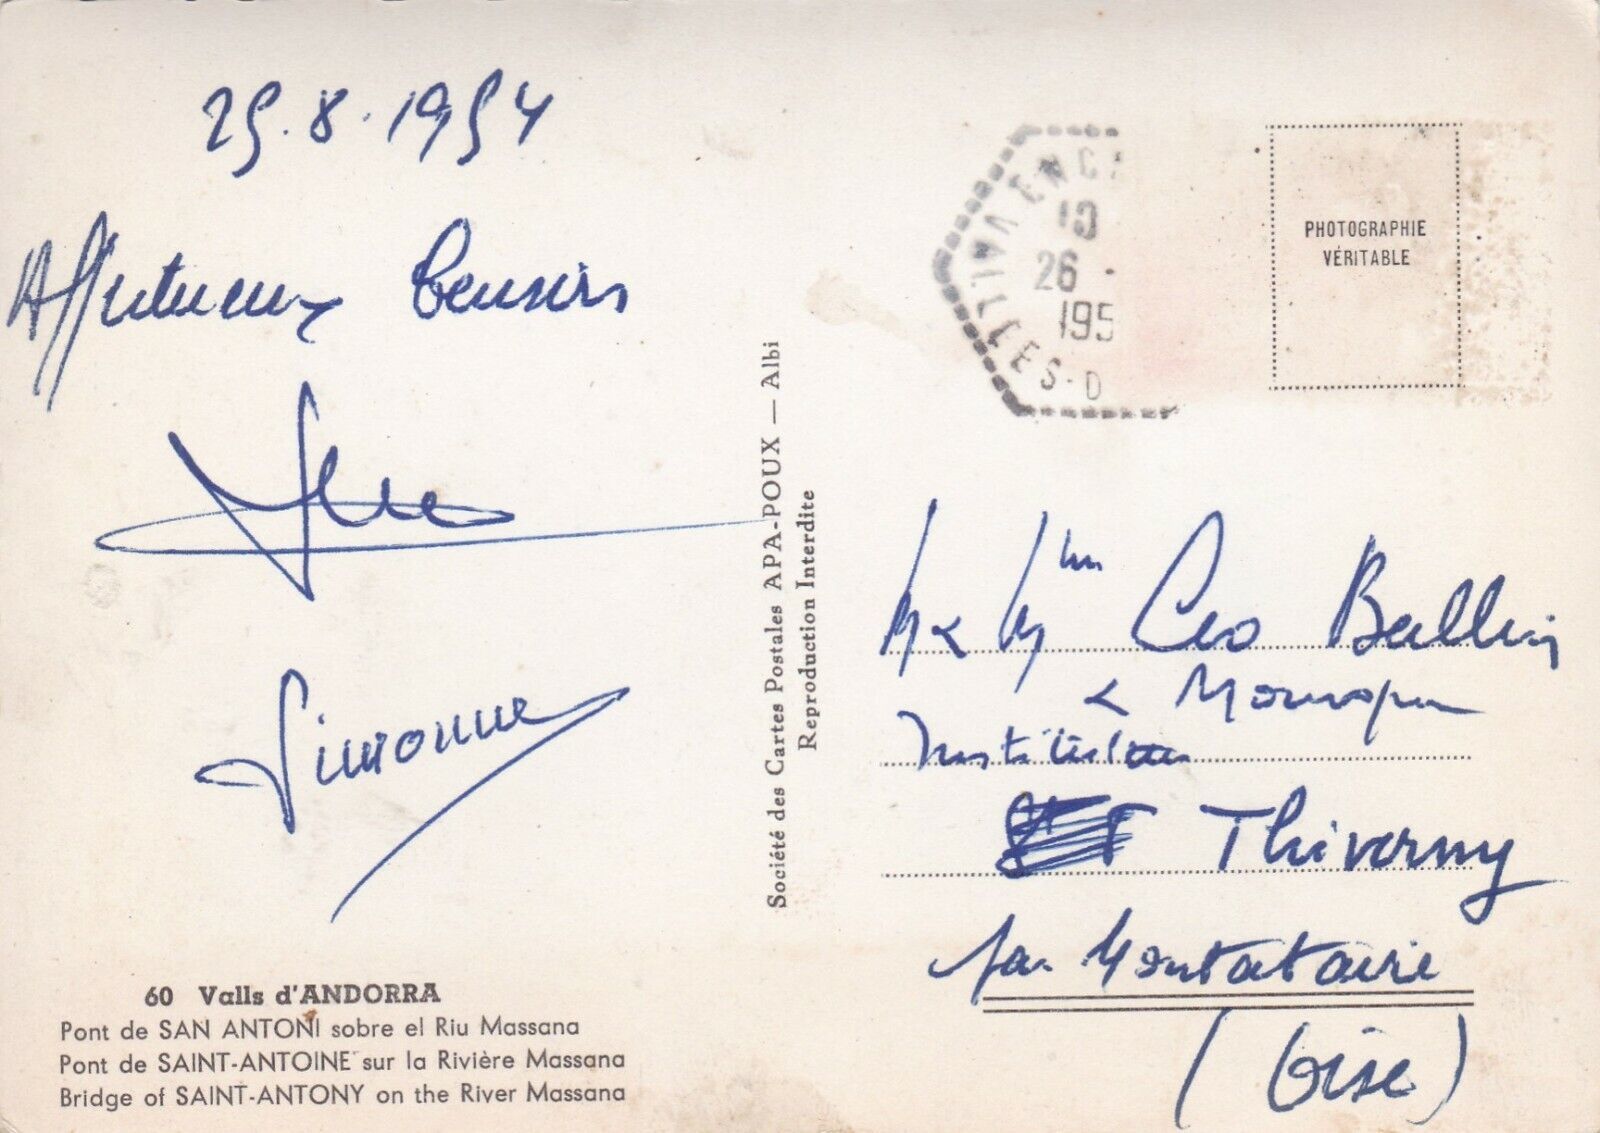 25.8.1954
Affectueux Pensers
Simonne
60 Valls d'ANDORRA
Pont de SAN ANTONI sobre el Riu Massana
Pont de SAINT-ANTOINE sur la Rivière Massana
Bridge of SAINT-ANTONY on the River Massana
Société des Cartes Postales APA-POUX — Albi
Reproduction Interdite
10
26
195
VALLEES-D
PHOTOGRAPHIE
VÉRITABLE
M & Mme
&
Thiverny
par Montataire
(Oise)